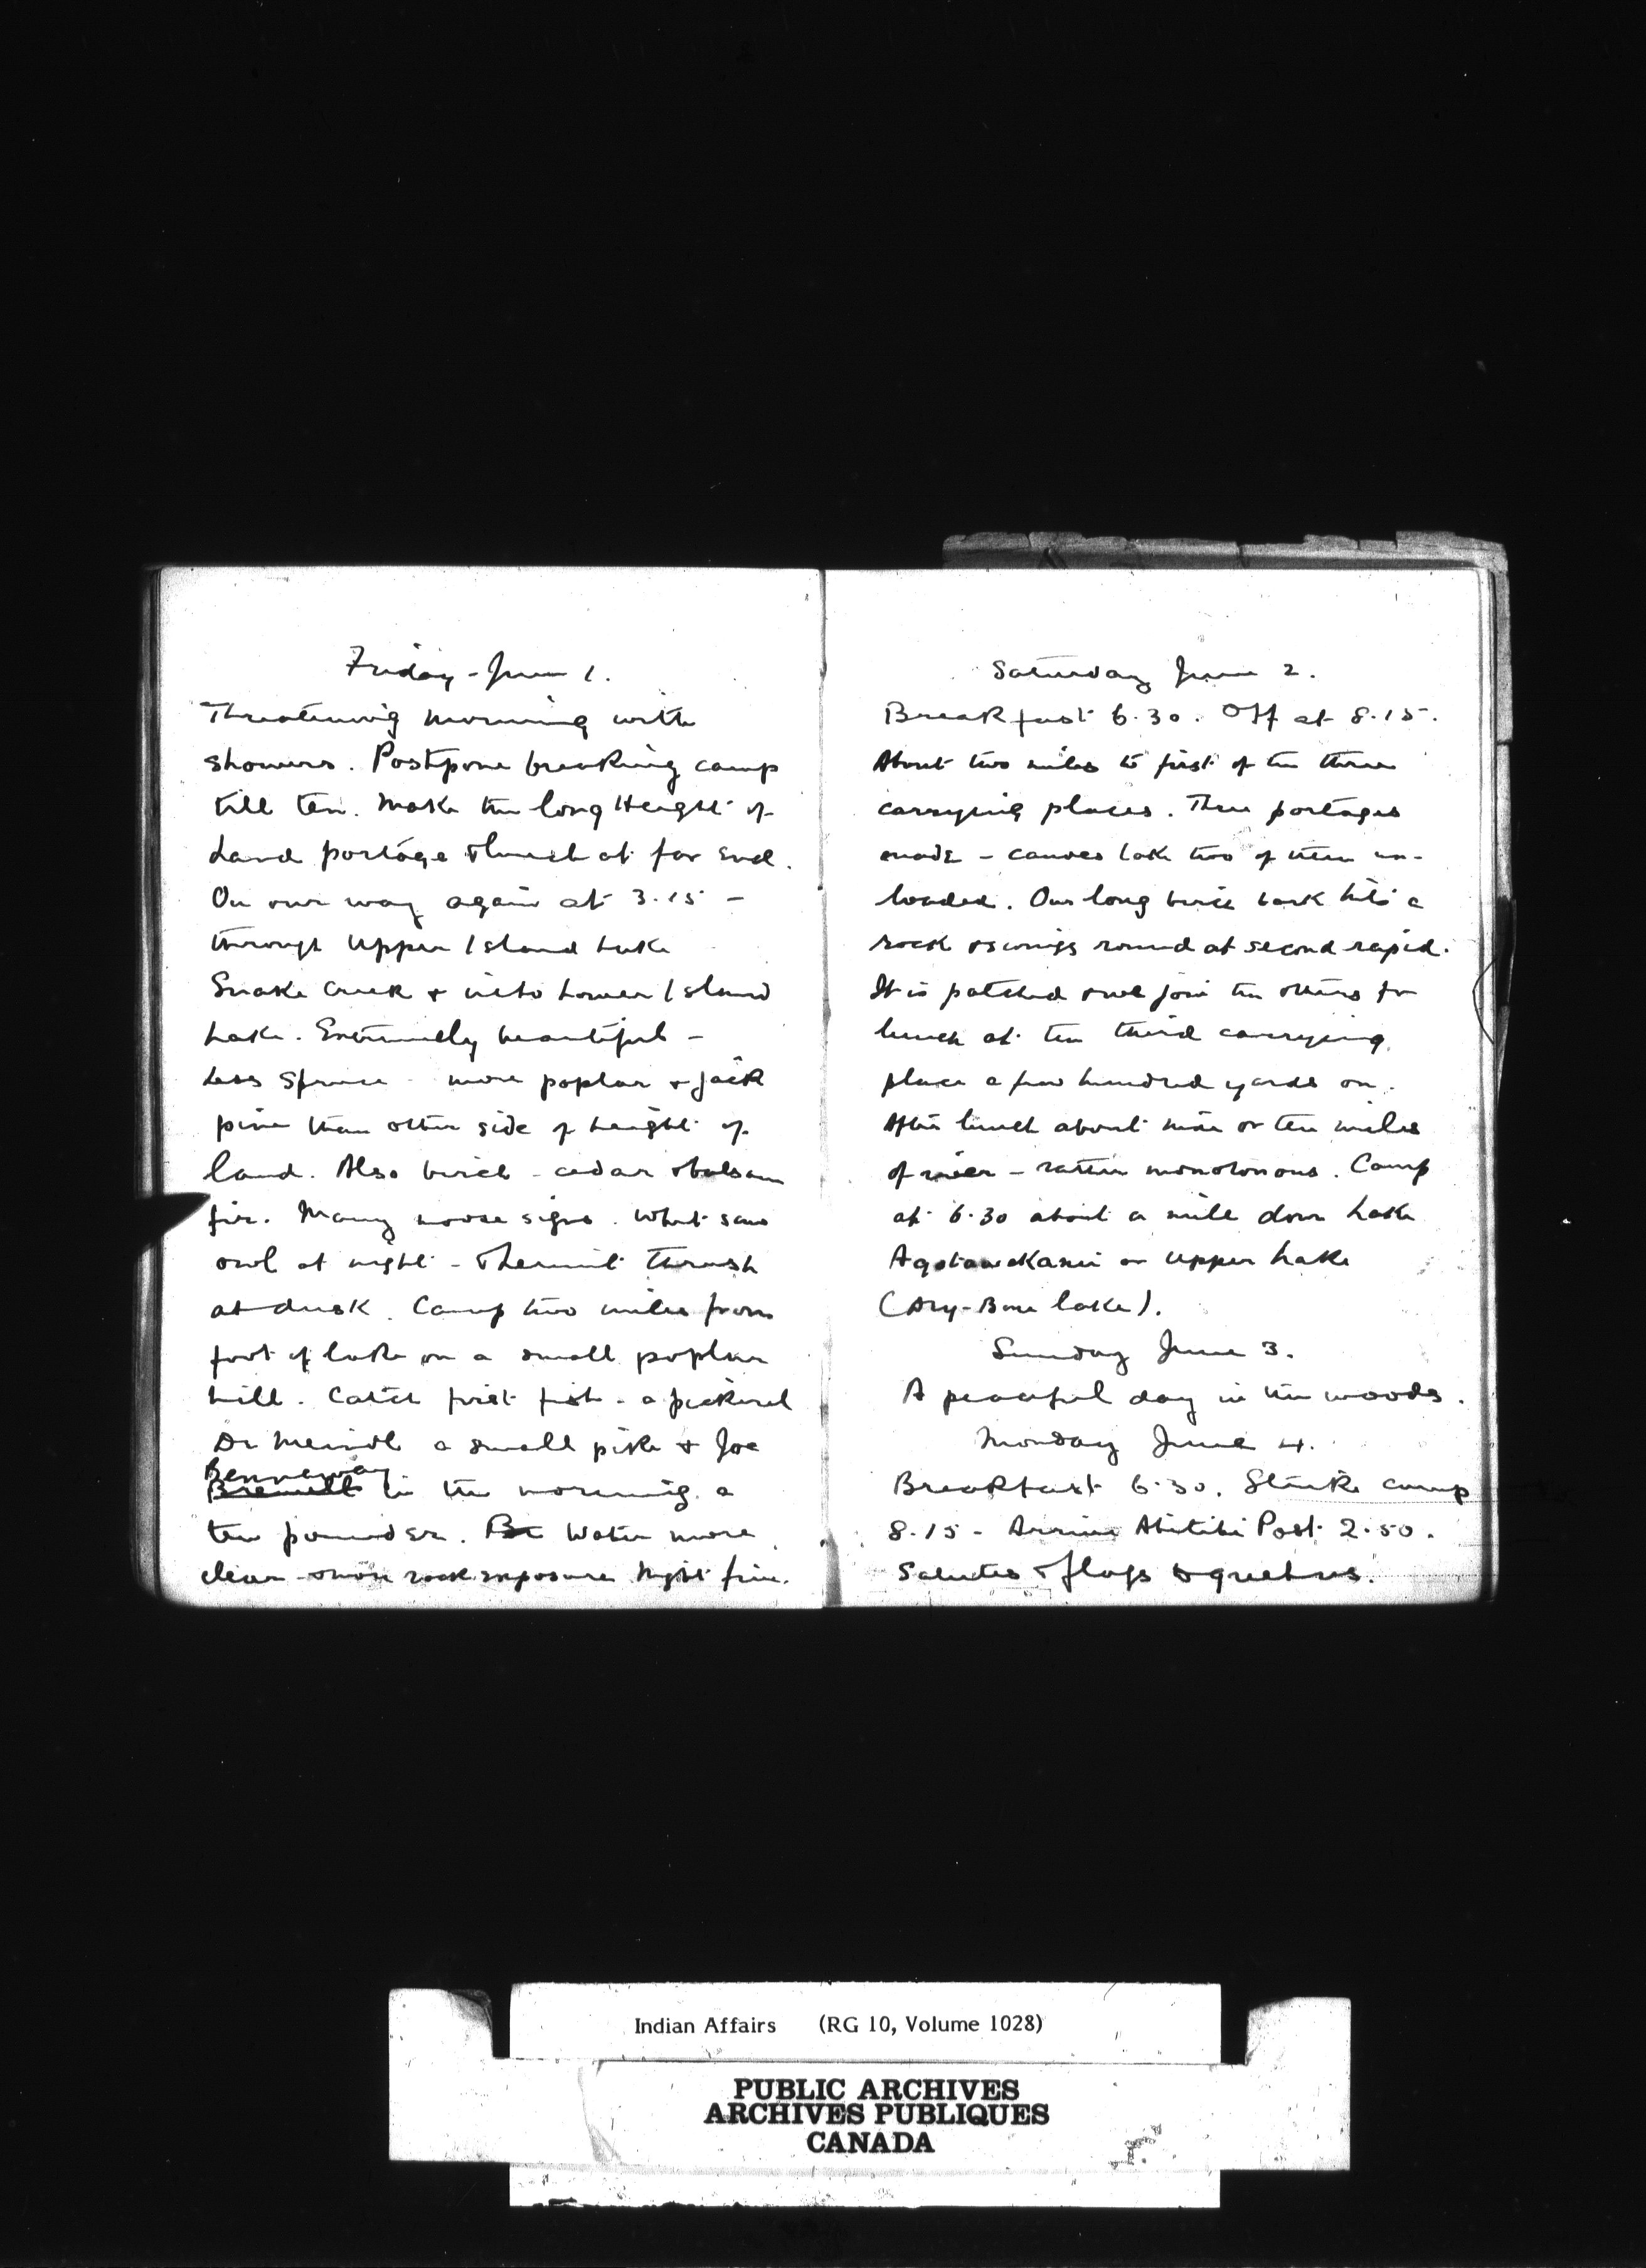 Friday - June 1.
Threatening morning with
showers. Postpone breaking camp
till ten. Make the long Height of
Land portage & lunch at far end.
On our way again at 3.15 -
through Upper Island Lake
Snake Creek & into Lower Island
Lake. Extremely beautiful -
Less spruce - more poplar & jack
pine than other side of height of
land. Also birch - cedar & balsam
fir. Many moose signs. What saw
owl at night - & hermit thrush
at dusk. Camp two miles from
foot of lake on a small poplar
hill. Catch first fish - a pickerel
Dr Meindl a small pike & Joe
Benneway
in the morning a
ten pounder. Water more
clear - more rock exposure Night fine.
Saturday June 2.
Breakfast 6.30. Off at 8.15.
About two miles to first of the three
carrying places. Three portages
made - canoes take two of them un-
loaded. Our long birch bark hits a
rock & swings round at second rapid.
It is patched & we join the others for
lunch at the third carrying
place a few hundred yards on.
After lunch about nine or ten miles
of river - rather monotonous. Camp
at 6.30 about a mile down Lake
or Upper Lake
lake).
Sunday June 3.
A peaceful day in the woods.
Monday June 4.
Breakfast 6.30. Strike camp
8.15 - Arrive Abitibi Post 2.50.
Salutes & flags to greet us.
Indian Affairs (RG 10, Volume 1028)
PUBLIC ARCHIVES
ARCHIVES PUBLIQUES
CANADA